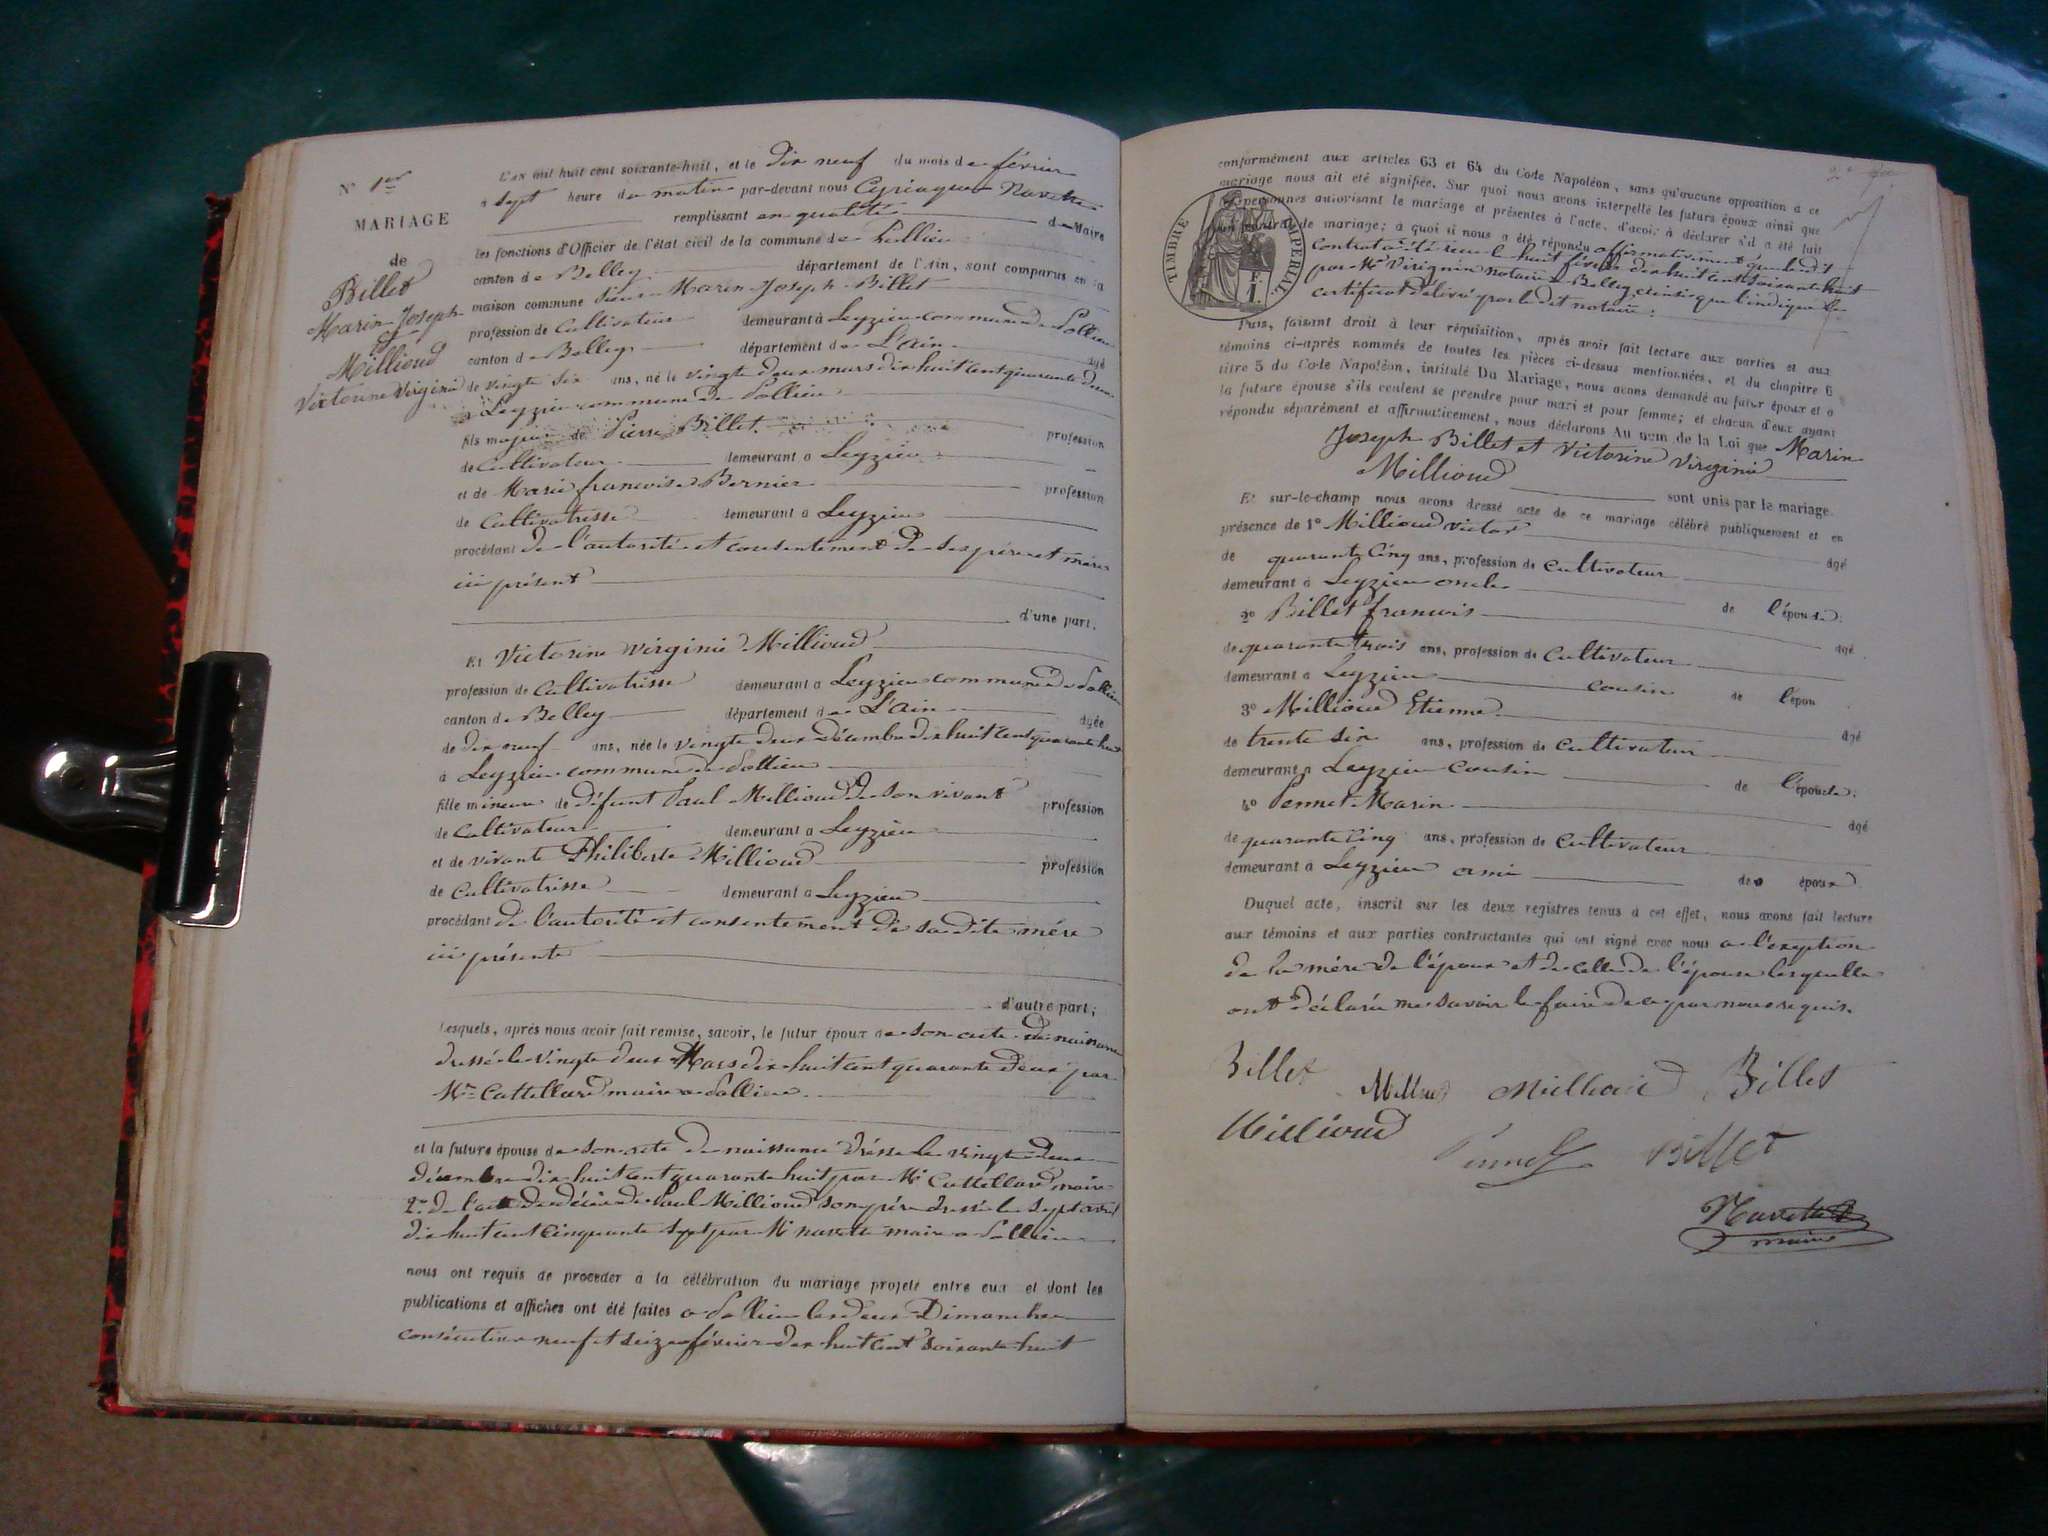 N° 1er
MARIAGE
de
Billet
Marin Joseph
et
Millioud
Victorine Virginie
L'an mil huit cent soixante-huit, et le dix neuf du mois de février
à sept heure du matin par-devant nous Cyriaque Navette
remplissant en qualité de Maire
les fonctions d'Officier de l'état civil de la commune de Pollieu
canton de Belley département de l'Ain, sont comparus en la
maison commune Sieur Marin Joseph Billet
profession de Cultivateur demeurant à Leyzieu commune de Pollieu
canton de Belley département de L'ain âgé
de vingt six ans, né le vingt deux mars dix huit cent quarante deux
à Leyzieu commune de Pollieu
fils majeur de Pierre Billet profession
de Cultivateur demeurant à Leyzieu
et de Marie françoise Bernier profession
de Cultivatrisse demeurant à Leyzieu
procédant de l'autorité et consentement de ses père et mère
ici présent
d'une part.
Et Victorine Virginie Millioud
profession de Cultivatrisse demeurant à Leyzieu commune de Pollieu
canton de Belley département de L'ain âgée
de dix neuf ans, née le vingt deux Décembre dix huit cent quarante huit
à Leyzieu commune de Pollieu
fille mineure de défunt Paul Millioud de son vivant profession
de Cultivateur demeurant à Leyzieu
et de vivante Philiberte Millioud profession
de Cultivatrisse demeurant à Leyzieu
procédant de l'autorité et consentement de sa dite mére
ici présente
d'autre part;
Lesquels, après nous avoir fait remise, savoir, le futur époux de son acte de naissance
dressé le vingt deux Mars dix huit cent quarante deux par
Mr Cattellard maire a Pollieu
et la future épouse de son acte de naissance dressé le vingt deux
décembre dix huit cent quarante huit par Mr Cattellard maire
2° de l'acte de décès de Paul Millioud son père dressé le sept avril
dix huit cent cinquante sept par Mr navette maire a Pollieu
nous ont requis de procéder à la célébration du mariage projeté entre eux et dont les
publications et affiches ont été faites a Pollieu les deux Dimanches
consécutives neuf et seize février dix huit cent soixante huit
conformément aux articles 63 et 64 du Code Napoléon, sans qu'aucune opposition à ce
mariage nous ait été signifiée. Sur quoi nous avons interpellé les futurs époux ainsi que
personnes autorisant le mariage et présentes à l'acte, d'avoir à déclarer s'il a été fait
de mariage; à quoi il nous a été répondu affirmativement que ledit
contrat a été reçu le huit février dix huit cent soixante huit
par Mr Virignin notaire a Belley, ainsi que l'indique le
certificat délivré par le dit notaire.
TIMBRE IMPERIAL
F.
1.
Puis, faisant droit à leur réquisition, après avoir fait lecture aux parties et aux
témoins ci-après nommés de toutes les pièces ci-dessus mentionnées, et du chapitre 6
titre 5 du Code Napoléon, intitulé Du Mariage, nous avons demandé au futur époux et à
la future épouse s'ils veulent se prendre pour mari et pour femme; et chacun d'eux ayant
répondu séparément et affirmativement, nous déclarons Au nom de la Loi que Marin
Joseph Billet et Victorine Virginie
Millioud sont unis par le mariage.
Et sur-le-champ nous avons dressé acte de ce mariage célébré publiquement et en
présence de 1° Millioud victor âgé
de quarante Cinq ans, profession de Cultivateur
demeurant à Leyzieu oncle de l'épouse.
2° Billet francois âgé
de quarante trois ans, profession de Cultivateur
demeurant à Leyzieu cousin de l'épou
3° Millioud Etienne âgé
de trente six ans, profession de Cultivateur
demeurant à Leyzieu Cousin de l'épouse.
4° Pennet Marin âgé
de quarante Cinq ans, profession de Cultivateur
demeurant à Leyzieu ami de époux
Duquel acte, inscrit sur les deux registres tenus à cet effet, nous avons fait lecture
aux témoins et aux parties contractantes qui ont signé avec nous a l'exeption
de la mére de l'époux et de celle de l'épouse lesquelle
ont déclarée ne savoir le faire de ce par nous requis.
Billet Millioud Millioud Billet
Millioud Pennet Billet
Navette
maire